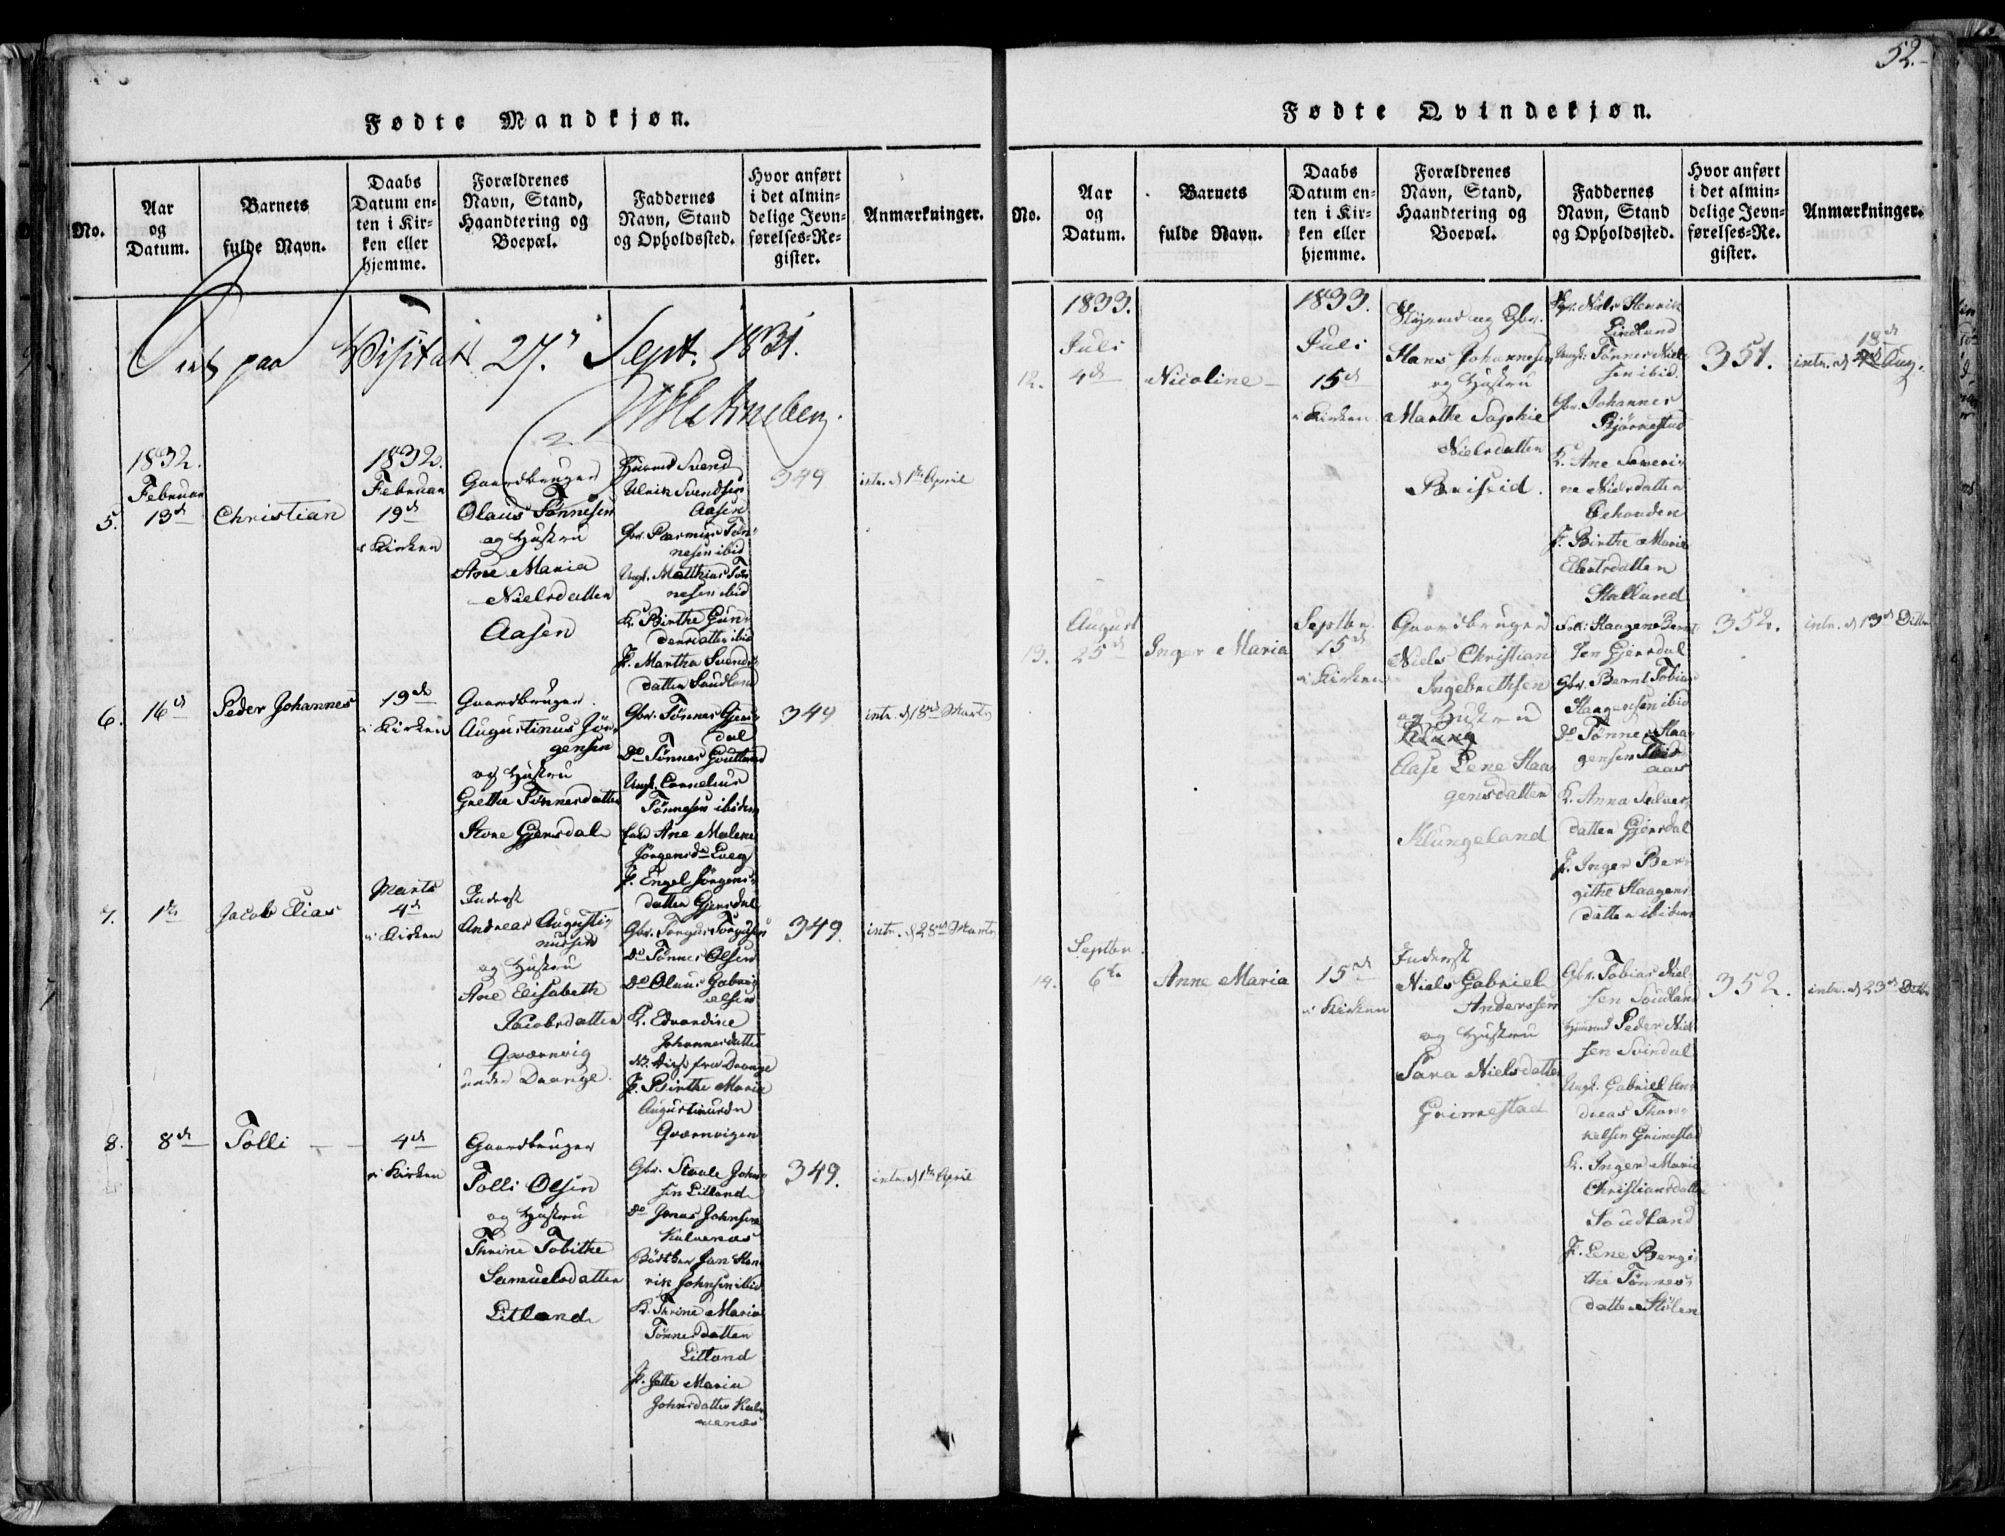 Fødte Mandkjøn.
No.
Aar
og
Datum.
Barnets
fulde Navn.
Daabs
Datum en-
ten i Kir-
ken eller
hjemme.
Forældrenes
Navn, Stand,
Haandtering og
Boepæl.
Faddernes
Navn, Stand
og Opholdssted.
Hvor anført
i det almin-
delige Jevn-
førelses-Re-
gister.
Anmærkninger.
paa Visitats 27. Sept. 1831.
5.
1832.
Februar
13de
Christian
1832.
Februar
19de
i Kirken
Gaardbruger
Olaus Tønnesen
og Hustru
Ane Maria
Nielsdatter
Aasen
Huusmd Svend
Ulrik Svendsen
Aasen
Gbr. Rasmus Tøn-
nesen ibid
Ungk. Matthias Tøn-
nesen ibid
K. Birthe Gun-
dersdatter ibid
P. Martha Svends-
datter Sandland
349
intr. d 1ste April
6.
16de
Peder Johannes
19de
i Kirken
Gaardbruger
Augustinus Jør-
gensen
og Hustru
Grethe Tønnesdatter
Store Gjersdal
Gbr. Tønnes Gjers-
dal
Do Tønnes
Ungk. Cornelius
Tønnesen ibidem
Ane Malene
Jørgensdr
P. Engel Jørgens-
datter Gjersdal
349
intr. d 18de Marts
7.
1ste
Jacob Elias
Marts
4de
i Kirken
Inderst
Andreas Augusti-
nussen
og Hustru
Ane Elisabeth
Jacobsdatter
Qværnvig
under Drange.
Gbr. Torgus Torgusen
Do Tønnes Olsen
Do Olaus Gabri-
elsen
K. Edvardine
Johannesdatter
fra Drange
P. Birthe Marie
Augustinusdr
Qværnvigen
349.
intr. d 28de Marts
8.
8de
Tolli
4de
i Kirken
Gaardbruger
Tolli Olsen
og Hustru
Thrine Tobithe
Samuelsdatter
Litland
Gbr. Staale John-
sen Litland
Do Jonas Johnsen
Kalvenæs
Bødker Jan Hen-
rik Johnsen ibid
K. Thrine Maria
Tønnesdatter
Litland
P. Jette Maria
Johnsdatter Kal-
venæs
349.
intr. d 1ste April
52.
Fødte Qvindekjøn.
No.
Aar
og
Datum.
Barnets
fulde Navn.
Daabs
Datum en-
ten i Kir-
ken eller
hjemme.
Forældrenes
Navn, Stand,
Haandtering og
Boepæl.
Faddernes
Navn, Stand
og Opholdssted.
Hvor anført
i det almin-
delige Jevn-
førelses-Re-
gister.
Anmærkninger.
12.
1833.
Juli
4de
Nicoline
1833.
Juli
15de
i Kirken
og Gbr.
Hans Johannesen
og Hustru
Marthe Sophie
Nielsdatter
Briseid.
Gbr. Niels Henrik
Lindland
Ungk. Tønnes Niel-
sen ibid.
Gbr. Johannes
Bjørnestad
K. Ane Severi-
ne Nielsdatter
P. Birthe Marie
Elertsdatter
Stalland
351.
18de
intr. d Aug.
13.
August
25de
Inger Maria
Septbr.
15de
i Kirken
Gaardbruger
Niels Christian
Ingebrethsen
og Hustru
Aase Lene Haa-
gensdatter
Klungeland
Haagen Bernt-
sen Gjersdal
Gbr. Bernt Tobias
Haagensen ibid
Do Tønnes Haa-
gensen
K. Anna
datter Gjersdal
P. Inger Ber-
githe Haagens-
datter ibidem
352.
intr. d 13de Octbr
14.
Septbr.
6te
Anne Maria
15de
i Kirken
Inderst
Niels Gabriel
Anderssen
og Hustru
Sara Nielsdatter
Grimestad
Gbr. Tobias Niel-
sen Soudland
Huusmd Peder Niel-
sen Svindal
Ungk. Gabriel An-
dreas Thor-
kelsen Grimestad
K. Inger Maria
Christiansdatter
Soudland
P. Lene Bergi-
the Tønnes-
datter Stølen
352.
intr. d 23de Octbr